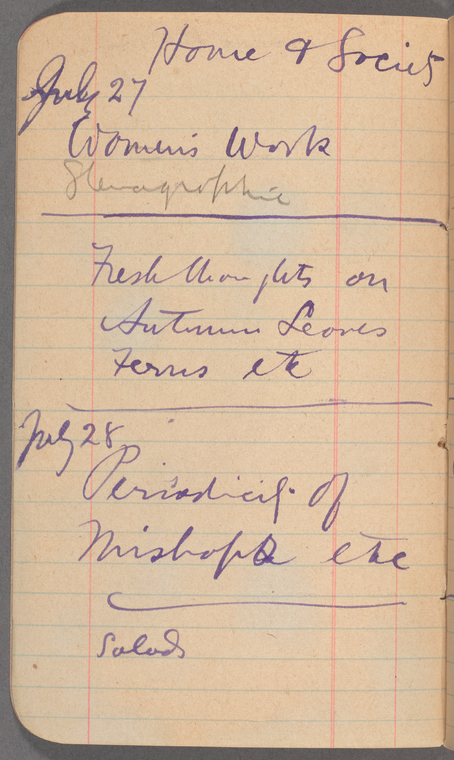 Home & Society
July 27
Women's Work
Stenographic
Fresh thoughts on
Autumn Leaves
Ferns etc
July 28
Periodicity of
Mishaps etc
Salads